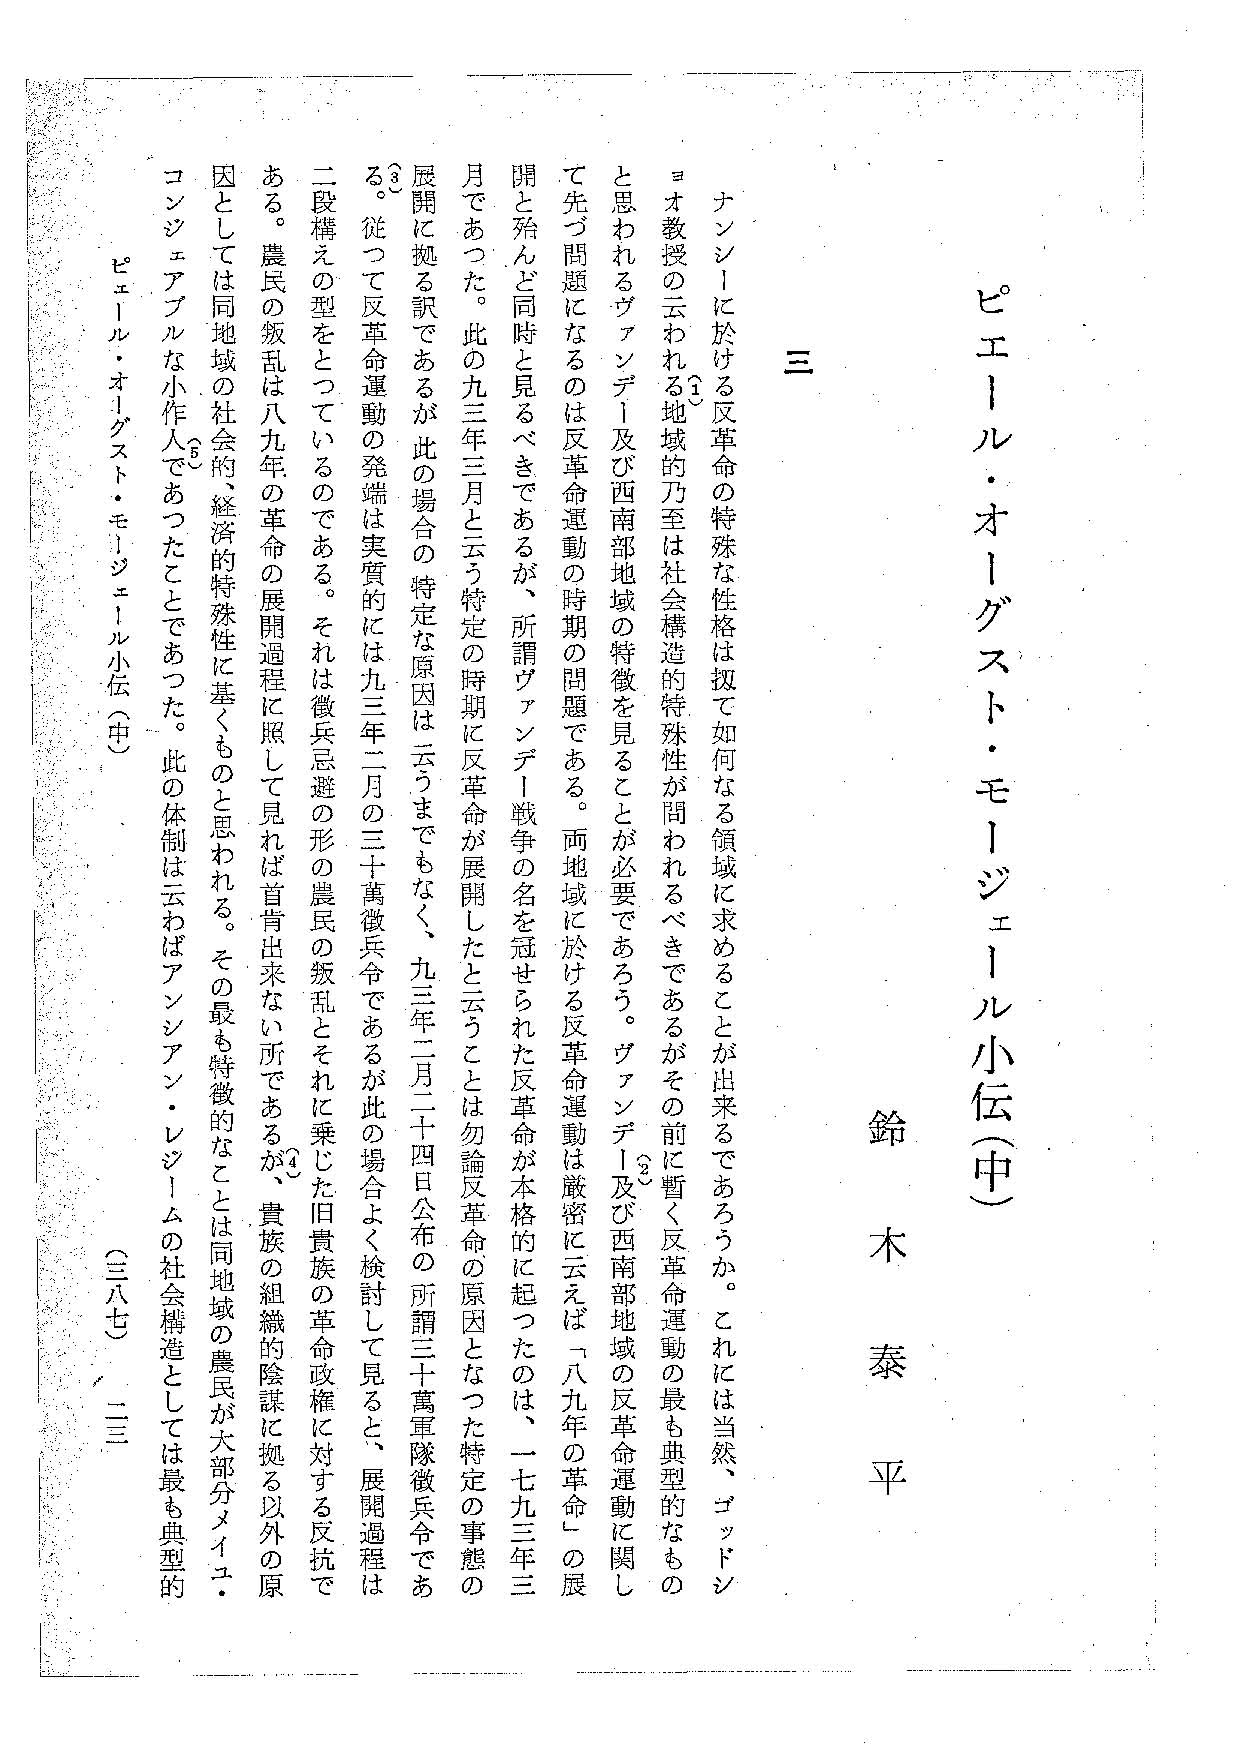 ピエール・オーグスト・モージェール小伝(中)
鈴木泰平
三
ナンシーに於ける反革命の特殊な性格は扨て如何なる領域に求めることが出来るであろうか。これには当然、ゴッドシ
ョオ教授の云われる(1)地域的乃至は社会構造的特殊性が問われるべきであるがその前に暫く反革命運動の最も典型的なもの
と思われるヴァンデー及び西南部地域の特徴を見ることが必要であろう。ヴァンデー(2)及び西南部地域の反革命運動に関し
て先づ問題になるのは反革命運動の時期の問題である。両地域に於ける反革命運動は厳密に云えば「八九年の革命」の展
開と殆んど同時と見るべきであるが、所謂ヴァンデー戦争の名を冠せられた反革命が本格的に起つたのは、一七九三年三
月であつた。此の九三年三月と云う特定の時期に反革命が展開したと云うことは勿論反革命の原因となつた特定の事態の
展開に拠る訳であるが此の場合の特定な原因は云うまでもなく、九三年二月二十四日公布の所謂三十萬軍隊徴兵令であ
る(3)。従つて反革命運動の発端は実質的には九三年二月の三十萬徴兵令であるが此の場合よく検討して見ると、展開過程は
二段構えの型をとつているのである。それは徴兵忌避の形の農民の叛乱とそれに乗じた旧貴族の革命政権に対する反抗で
ある。農民の叛乱は八九年の革命の展開過程に照して見れば首肯出来ない所であるが(4)、貴族の組織的陰謀に拠る以外の原
因としては同地域の社会的、経済的特殊性に基くものと思われる。その最も特徴的なことは同地域の農民が大部分メイユ・
コンジェアブルな小作人(5)であつたことであつた。此の体制は云わばアンシアン・レジームの社会構造としては最も典型的
ピェール・オーグスト・モージェール小伝(中)
(三八七) 二三